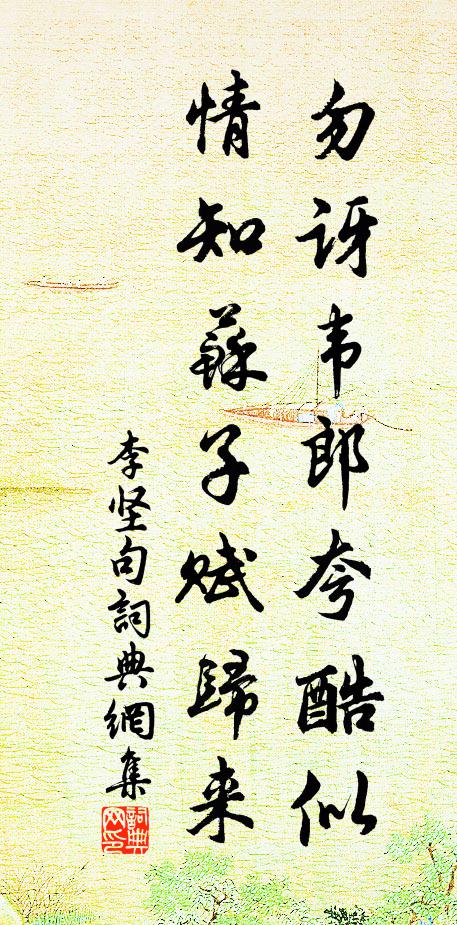 勿讶韦郎夸酷似
情知蘇子赋歸来
李坚句詞典網集
詞典网印